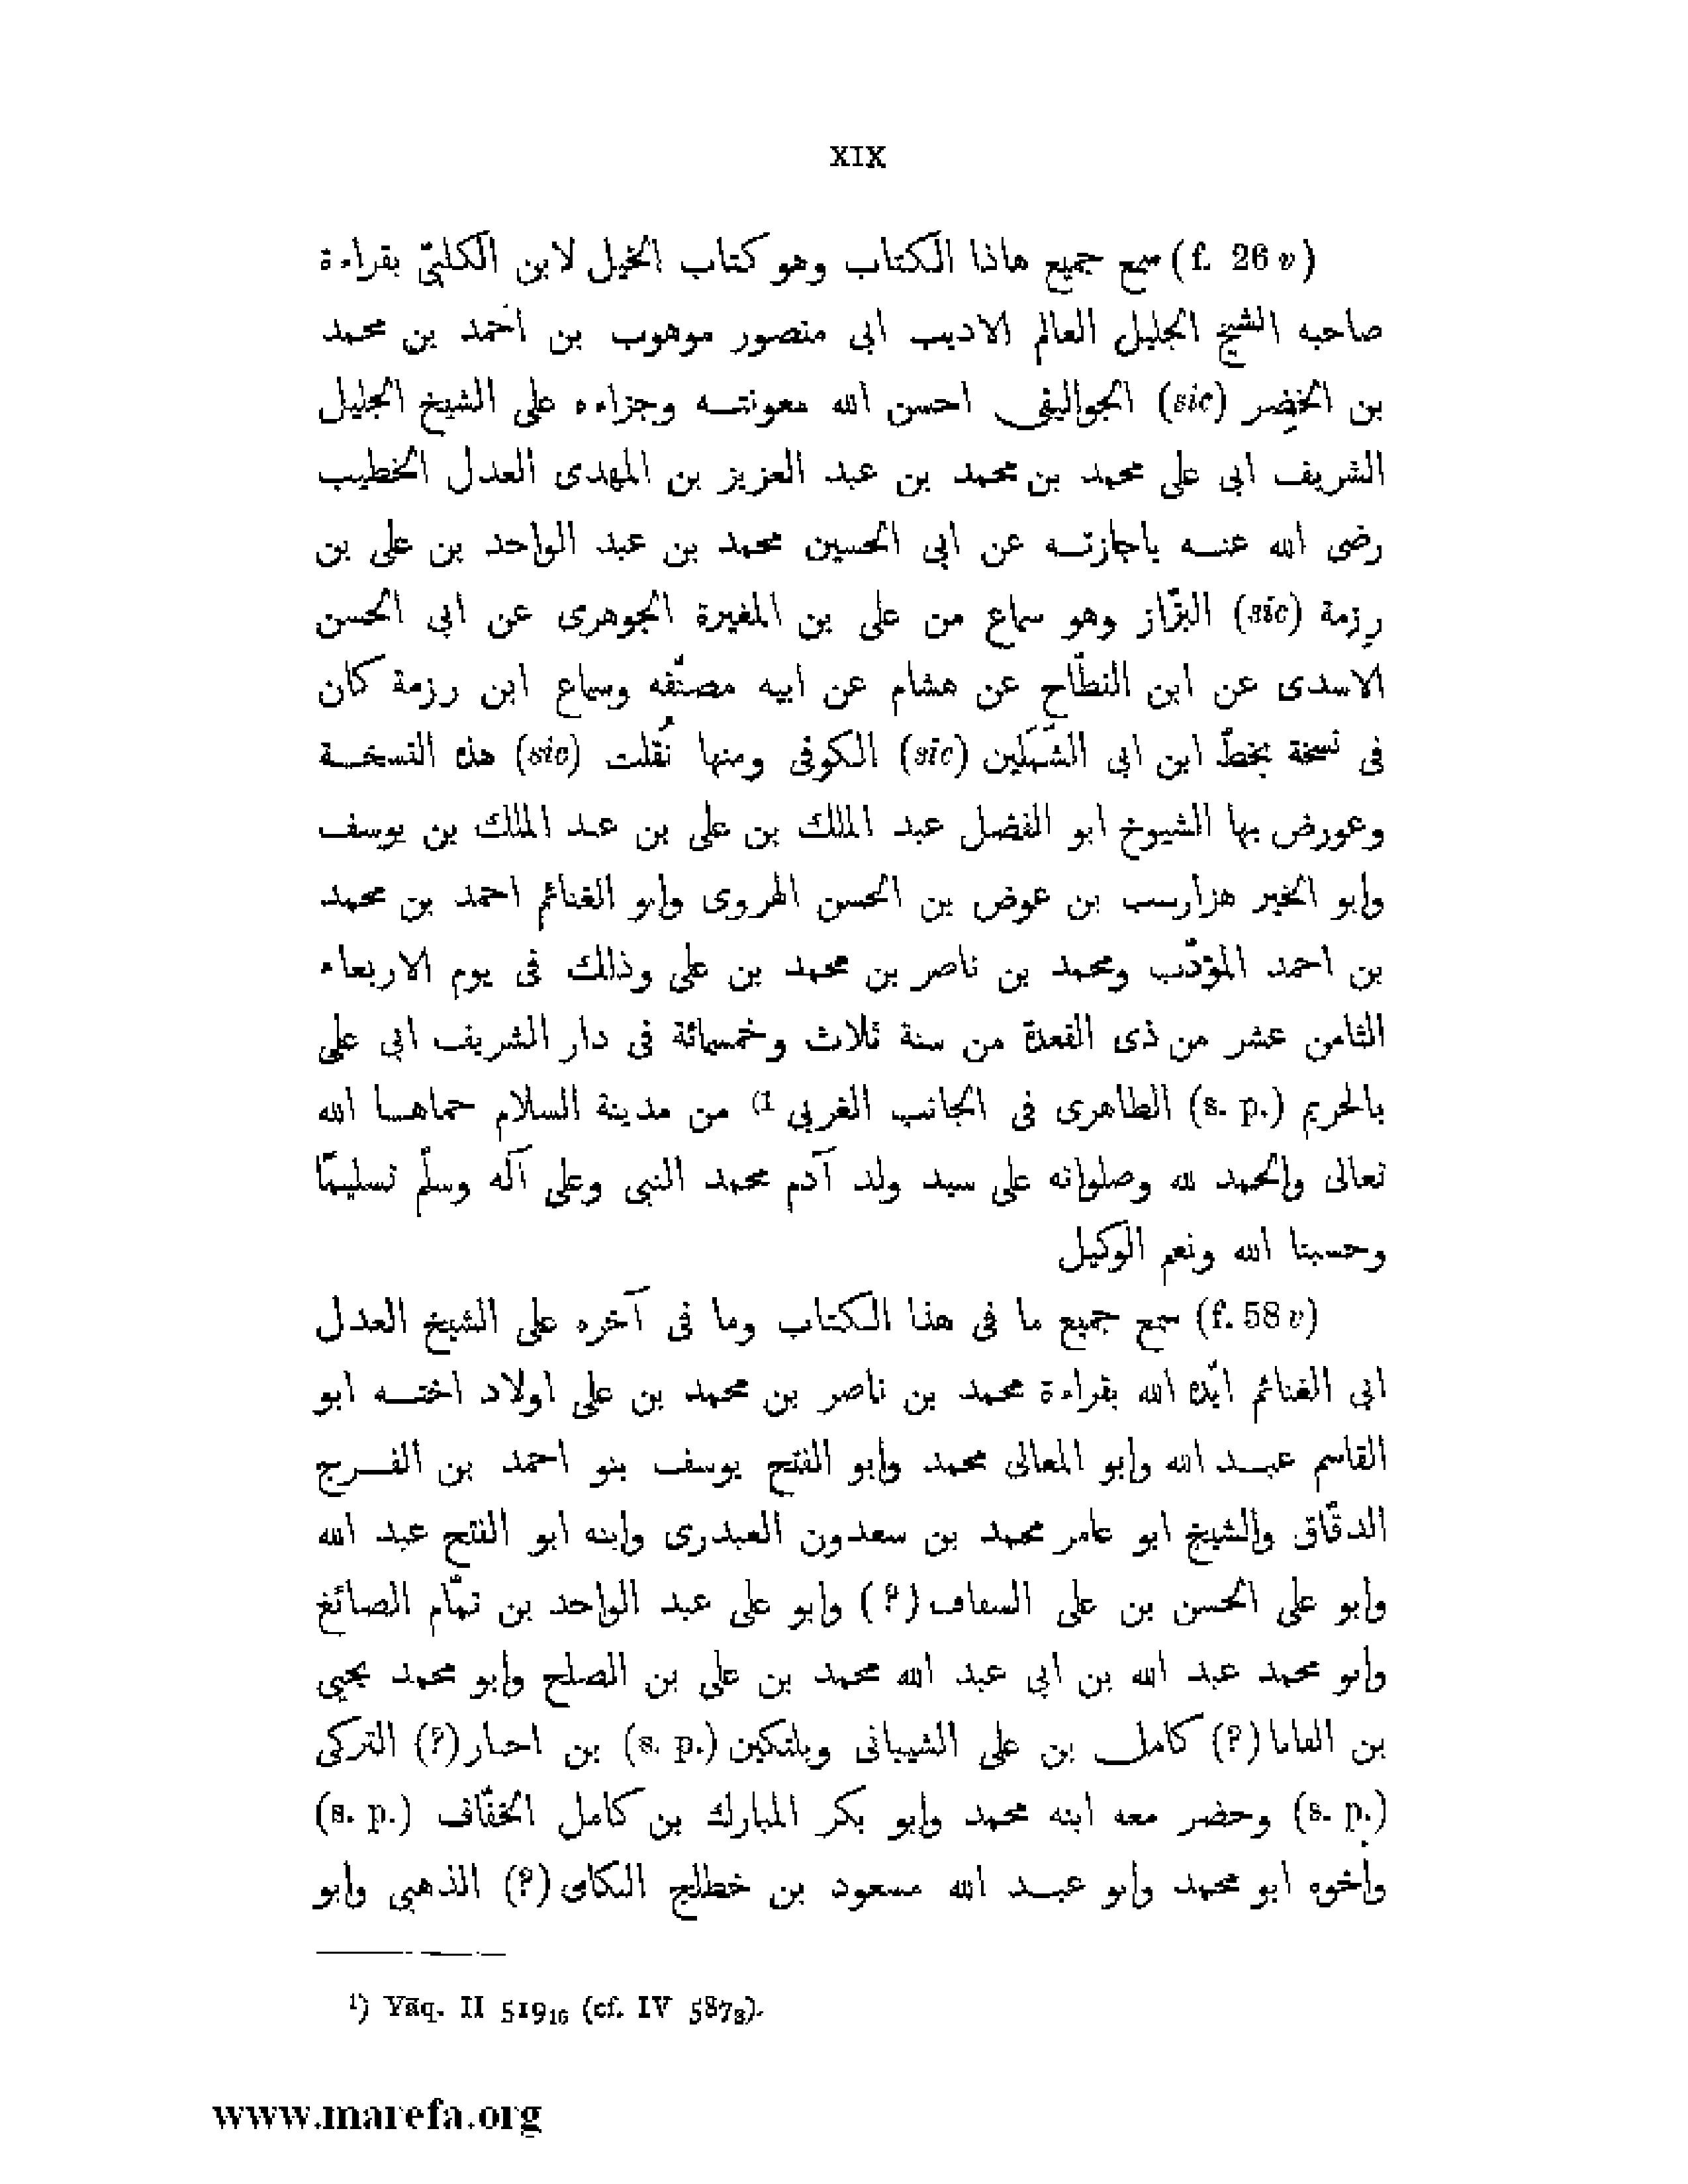 XIX
(f. 26 v) سمع جميع هاذا الكتاب وهو كتاب الخيل لابن الكلبىّ بقراءة
صاحبه الشيخ الجليل العالم الاديب ابى منصور موهوب بن احمد بن محمد
بن الخضِر (sic) الجواليقى احسن الله معونته وجزاءه على الشيخ الجليل
الشريف ابى على محمد بن محمد بن عبد العزيز بن المهدى العدل الخطيب
رضى الله عنه باجازته عن ابى الحسين محمد بن عبد الواحد بن على بن
رِزمة (sic) البزّاز وهو سماع من على بن المغيرة الجوهرى عن ابى الحسن
الاسدى عن ابن النطّاح عن هشام عن ابيه مصنّفه وسماع ابن رزمة كان
فى نسخة بخطّ ابن ابى (sic) الكوفى ومنها نُقلت (sic) هذه النسخة
وعورض بها الشيوخ ابو الفضل عبد الملك بن على بن عبد الملك بن يوسف
وابو الخير هزارسب بن عوض بن الحسن الهروى وابو الغنائم احمد بن محمد
بن احمد المؤدّب ومحمد بن ناصر بن محمد بن على وذلك فى يوم الاربعاء
الثامن عشر من ذى القعدة من سنة ثلاث وخمسمائة فى دار الشريف ابى على
بالحريم (s. p.) الطاهرى فى الجانب الغربى (1 من مدينة السلام حماها الله
تعالى والحمد لله وصلواته على سيد ولد آدم محمد النبى وعلى آله وسلّم تسليمًا
وحسبنا الله ونعم الوكيل
(f. 58 v) سمع جميع ما فى هذا الكتاب وما فى آخره على الشيخ العدل
ابى الغنائم ايّده الله بقراءة محمد بن ناصر بن محمد بن على اولاد اخته ابو
القاسم عبد الله وابو المعالى محمد وابو الفتح يوسف بنو احمد بن الفرج
الدقّاق والشيخ ابو عامر محمد بن سعدون العبدرى وابنه ابو الفتح عبد الله
وابو على الحسن بن على (?) وابو على عبد الواحد بن تمّام الصائغ
وابو محمد عبد الله بن ابى عبد الله محمد بن على بن الصلح وابو محمد يحيى
بن (?) كامل بن على الشيبانى ويلتكين (s. p.) بن (?) التركى
(s. p.) وحضر معه ابنه محمد وابو بكر المبارك بن كامل الخفّاف (s. p.)
وأخوه ابو محمد وابو عبد الله مسعود بن خطلج (?) الذهبى وابو
¹) Yāq. II 519₁₆ (cf. IV 587₈).
www.marefa.org